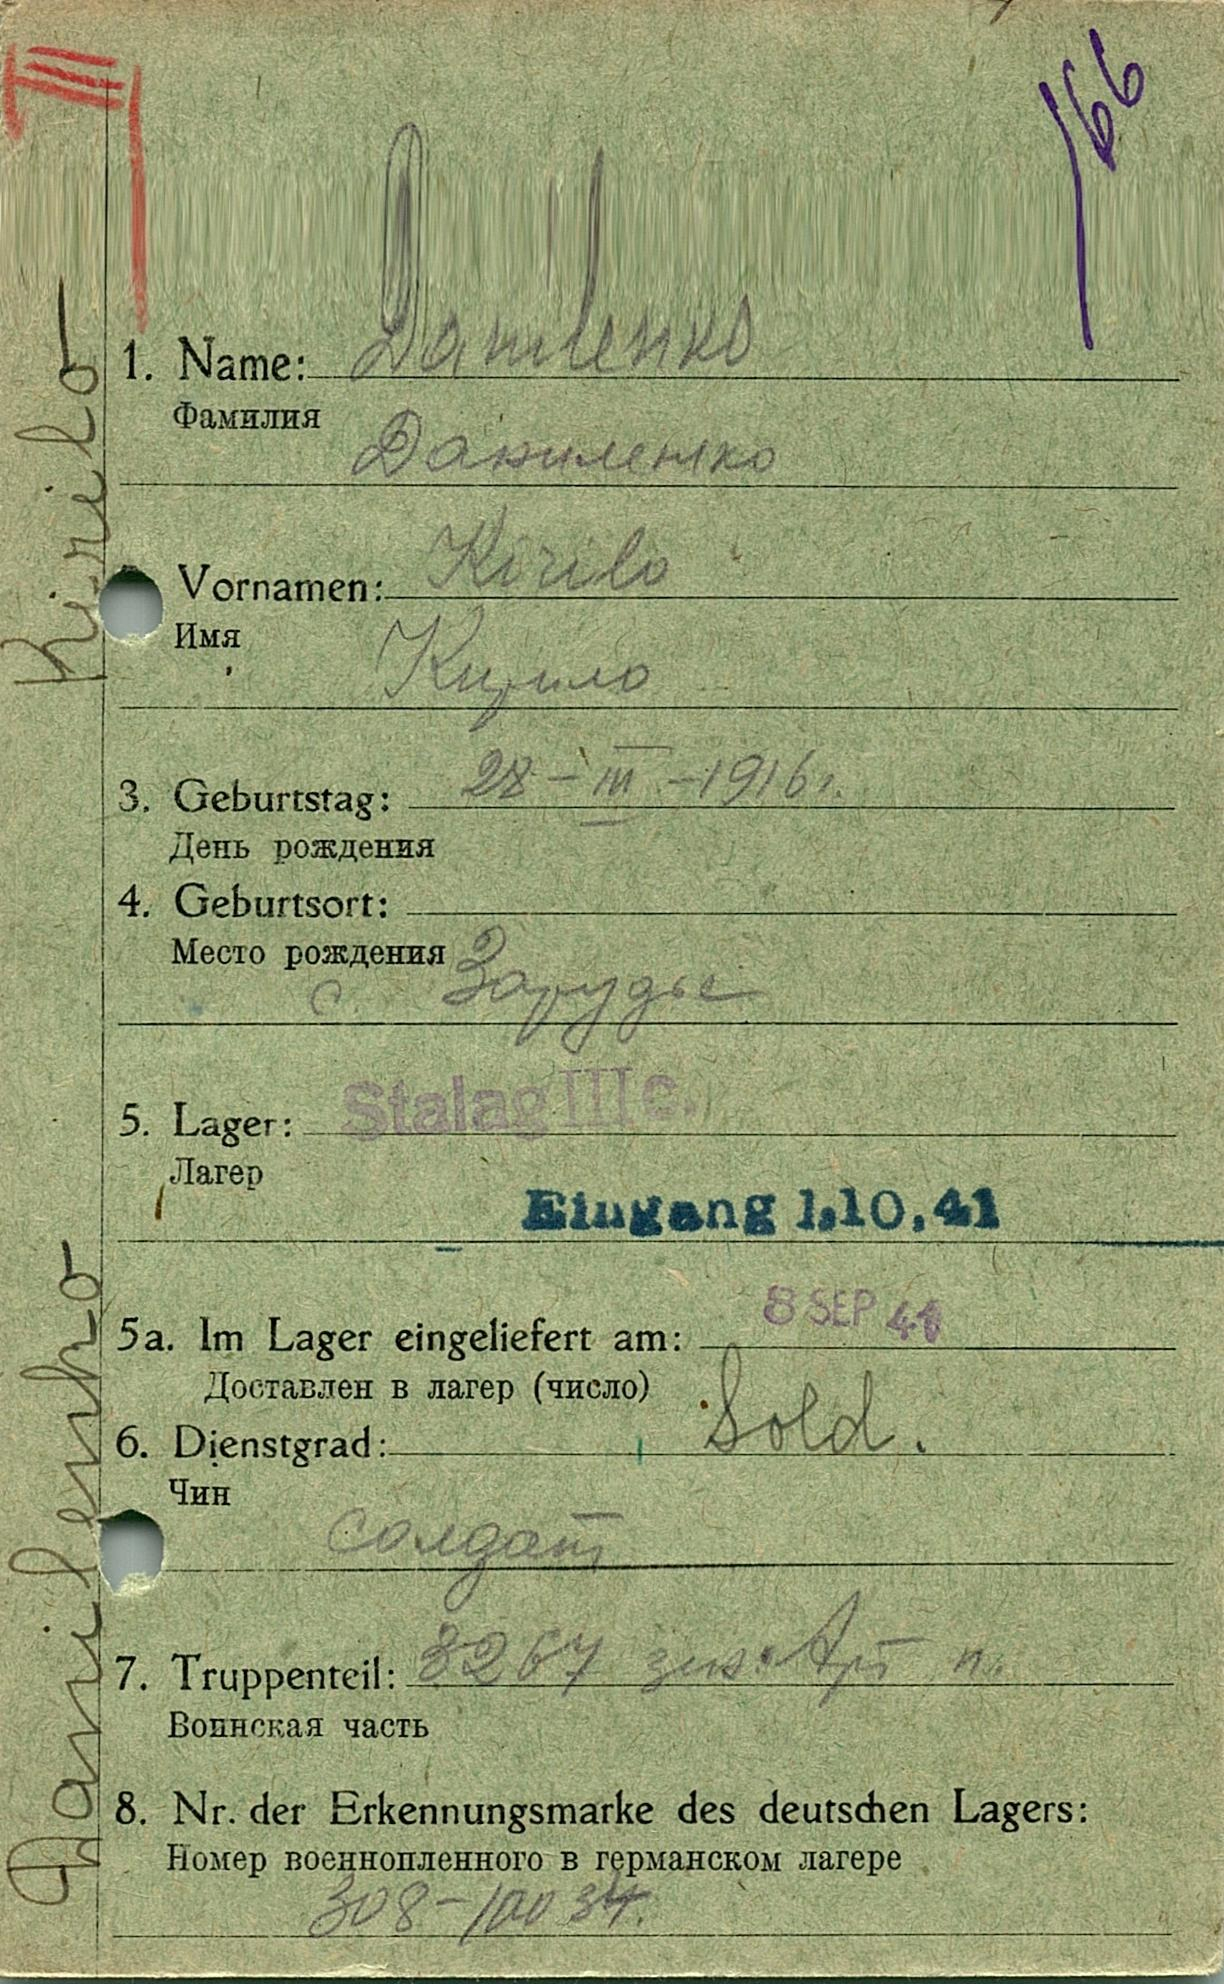 166
1. Name: Danilenko
Фамилия
Даниленко
Vornamen: Kirilo
Имя
Кирило
3. Geburtstag: 28-III-1916г.
День рождения
4. Geburtsort:
Место рождения
с. Зарудье
5. Lager: Stalag IIIc.
Лагер
Eingang 1.10.41
5a. Im Lager eingeliefert am: 8 SEP 41
Доставлен в лагер (число)
6. Dienstgrad: Sold.
Чин
солдат
7. Truppenteil: 3267 Арт п.
Воинская часть
8. Nr. der Erkennungsmarke des deutschen Lagers:
Номер военнопленного в германском лагере
308-10034.
Danilenko Kirilo